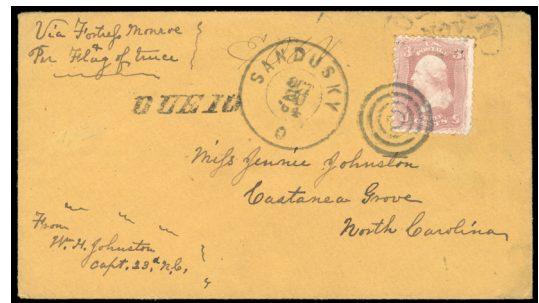 Via Fortress Monroe
Per Flag of truce
SANDUSKY
O
OCT
DUE 10
3 3
U.S. POSTAGE
CENTS
Miss Jennie Johnston
Castanea Grove
North Carolina
From
Wm. H. Johnston
Capt. 23d N.C.